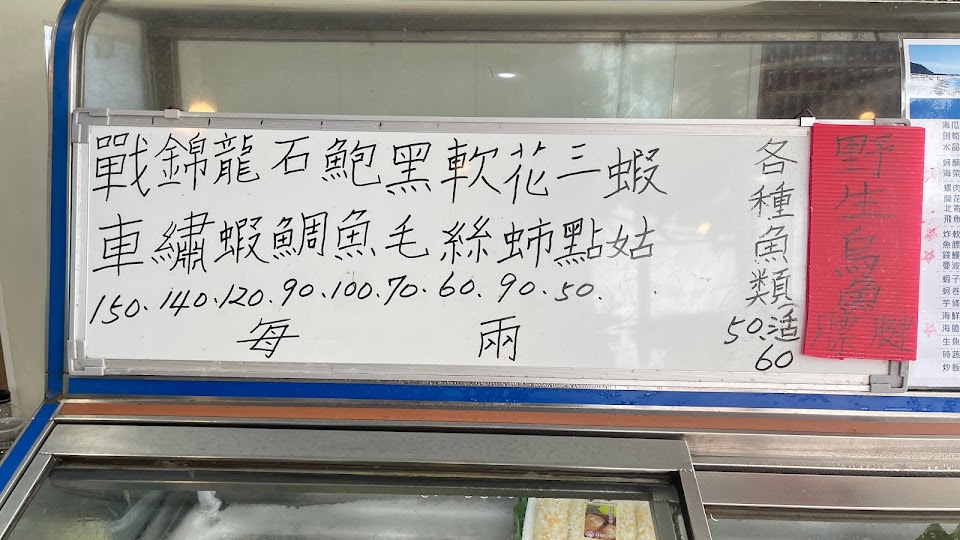 戰錦龍石鮑黑軟花三蝦
車繡蝦鯛魚毛絲 點姑
150. 140. 120. 90. 100. 70. 60. 90. 50.
每 兩
各種魚類活
50.
60
野生烏魚
海瓜
劍筍
水晶
蚵酥
海菜
螺肉
蘭花
北寄
飛魚
炸軟
魚膘
錢鰻
曼波
蝦子
蚵卷
芋條
海鮮
海膽
生魚
時蔬
炒飯